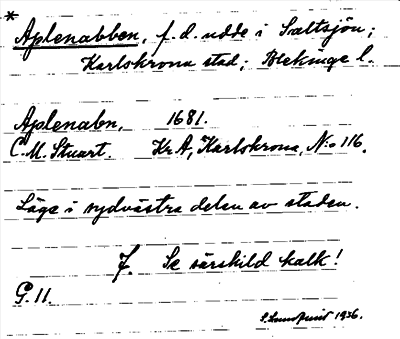 *
Aplenabben, f.d. udde i Saltsjön;
Karlskrona stad; Blekinge l.
Aplenabn, 1681.
C.M. Stuart. Kr.A, Karlskrona, N:o 116.
Läge i sydvästra delen av staden.
7. Se särskild kalk!
G.11.
1936.